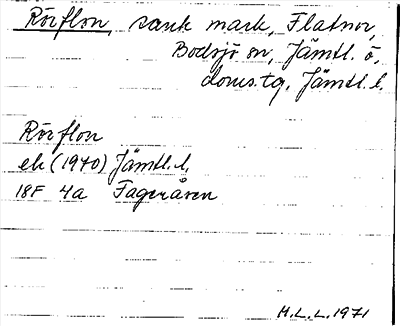 Rörflon, sank mark, Flatnor,
Bodsjö sn, Jämtl. ö.
doms.tg, Jämtl. l.
Rörflon
ek (1940) Jämtl. l.
18F 4a Fageråsen
H.L.L. 1971